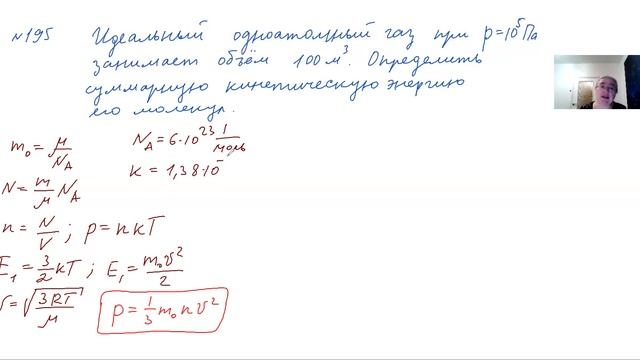 №195 Идеальный одноатомный газ при p=10⁵Па
занимает объём 100 м³. Определить
суммарную кинетическую энергию
его молекул.
m₀ = μ/N_A
N_A = 6·10²³ 1/моль
N = m/μ N_A
k = 1,38·10⁻
n = N/V ; p = nkT
E₁ = 3/2 kT ; E₁ = m₀v²/2
v = √(3RT/μ)
p = 1/3 m₀nv²